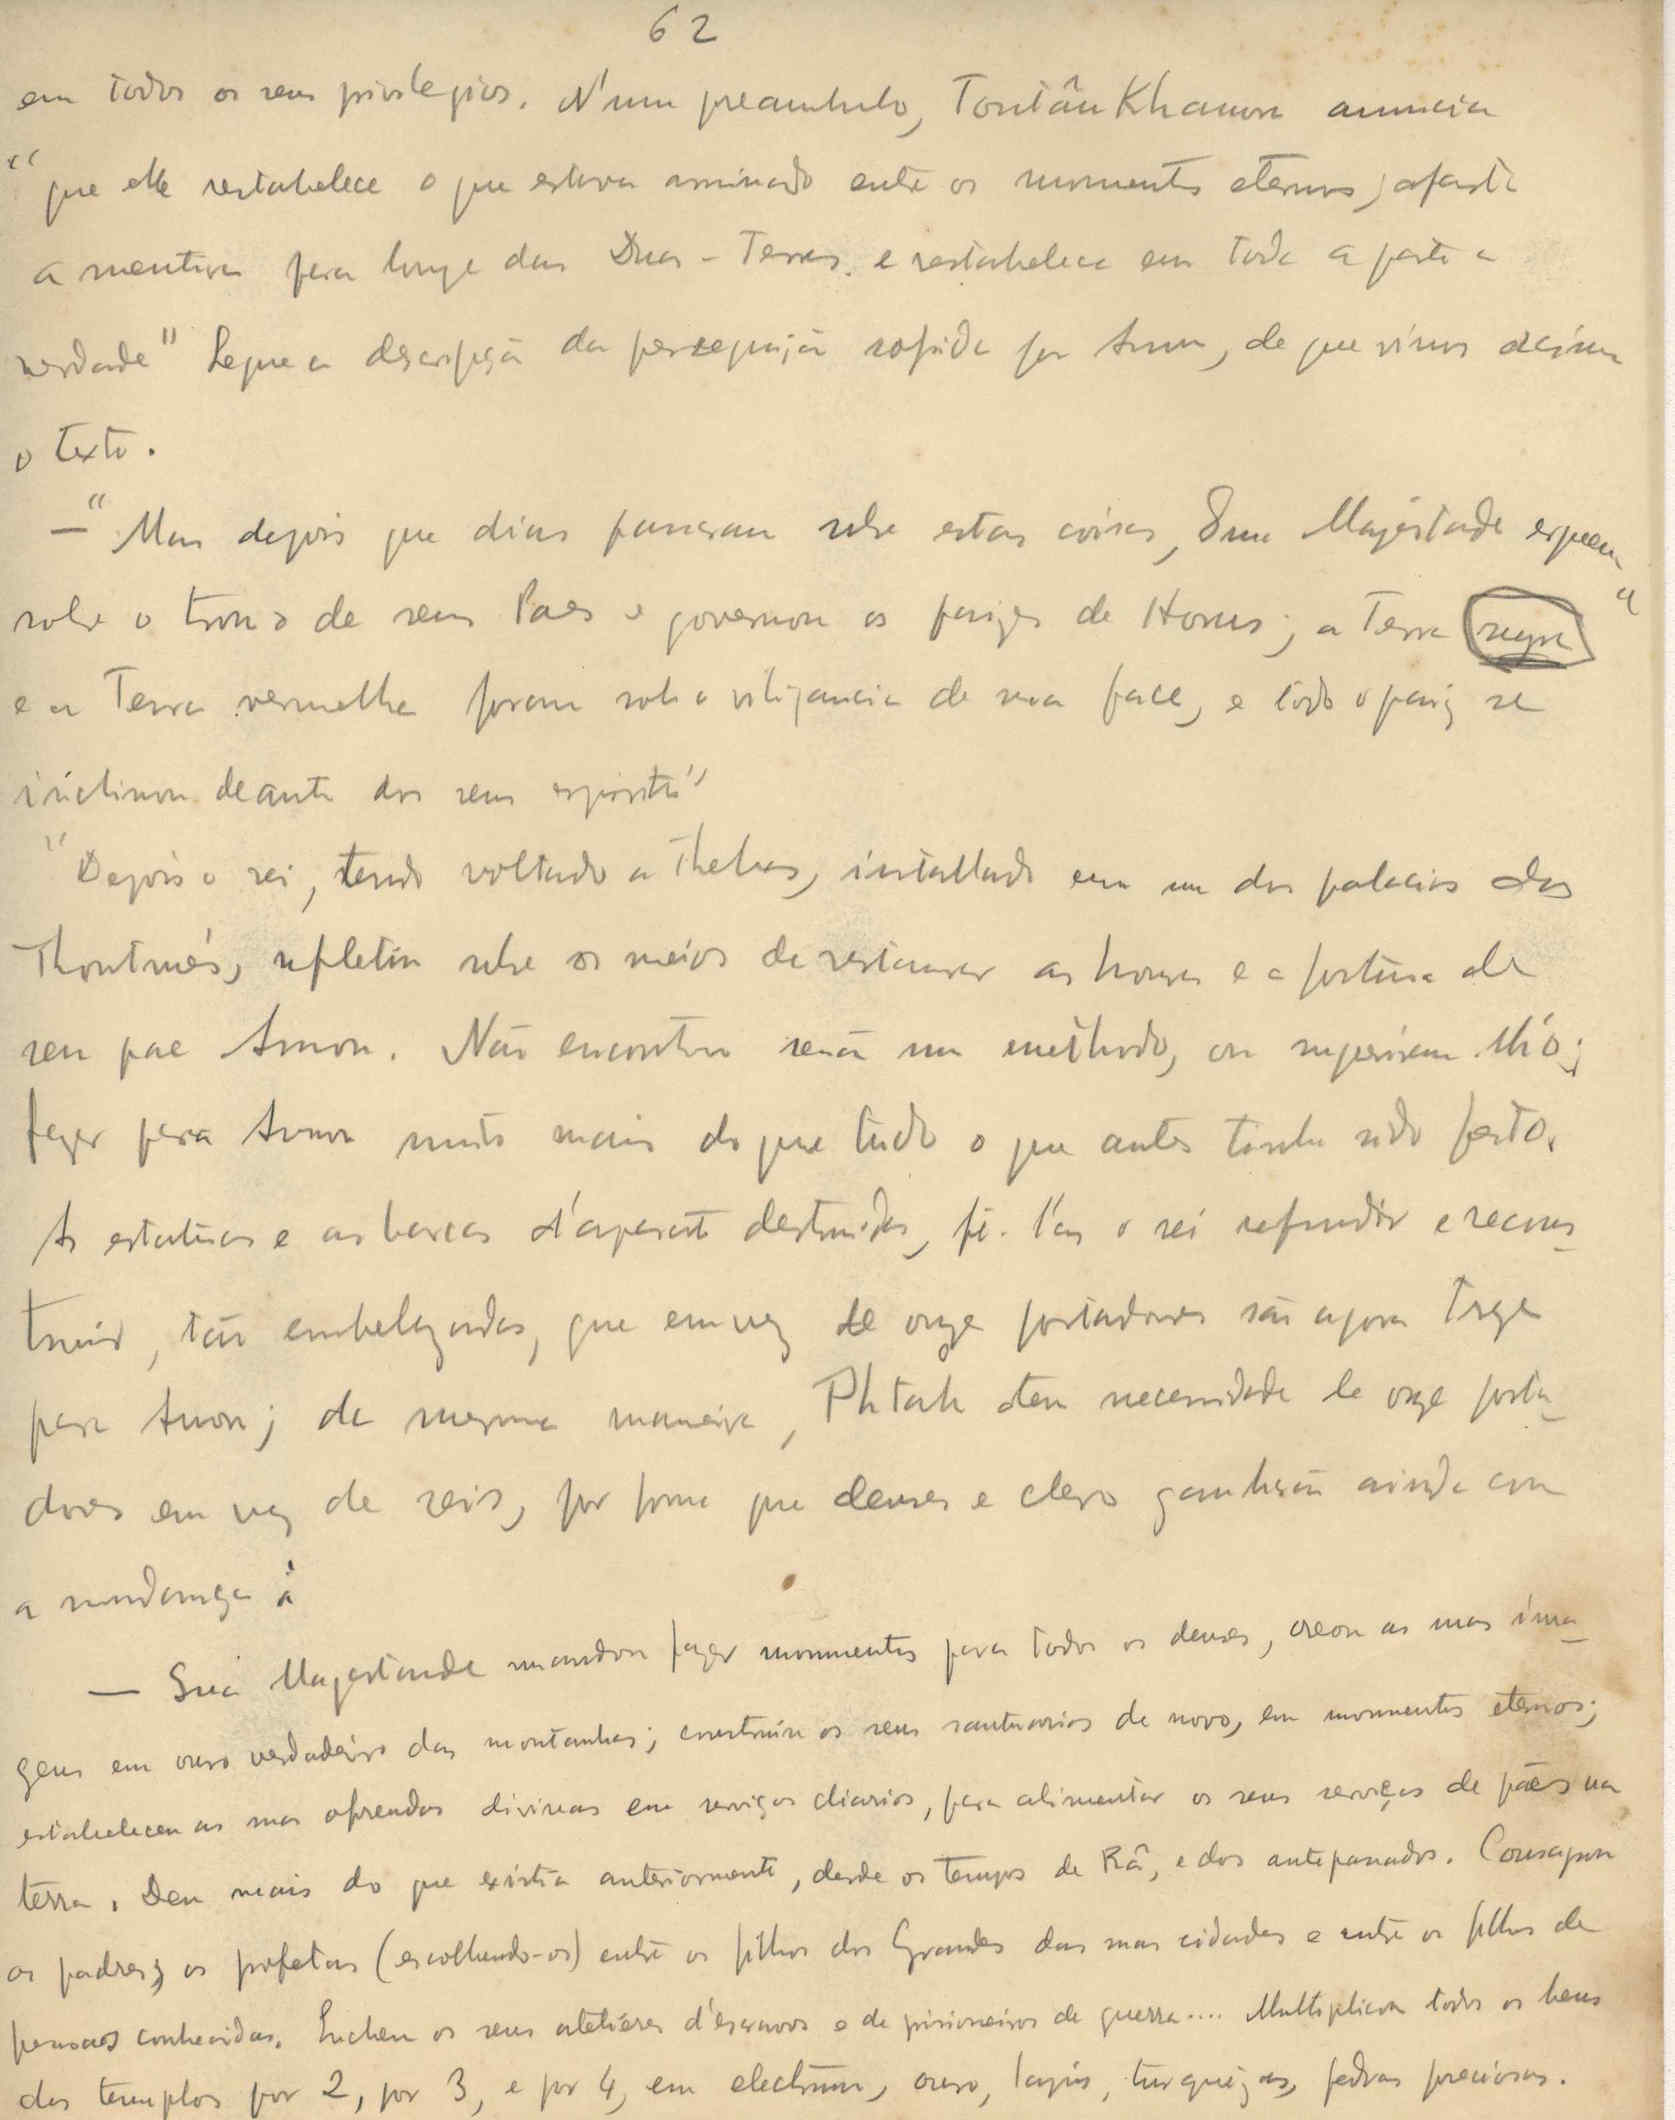 62
em todos os seus privilegios. N'um preambulo, Toutânkhamon annuncia
"que elle restabelece o que estava arruinado entre os monumentos eternos; afasta
a mentira para longe das Duas-Terras, e restabelece em toda a parte a
verdade" Segue a descripção da perseguição sofrida por Amon, de que vimos acima
o texto.
—"Mas depois que dias passaram sobre estas coisas, Sua Magestade ergueu
sobre o trono de seus Paes e governou os paizes de Horus; a Terra negra "
e a Terra vermelha foram sob a vigilancia de sua face, e todo o paiz se
inclinou deante dos seus espiritos"
"Depois o rei, tendo voltado a Thebas, installado em um dos palacios dos
Thoutmès, refletiu sobre os meios de restaurar as honras e a fortuna de
seu pae Amon. Não encontrou senão um methodo, ou sugeriram-lh'o;
fazer para Amon muito mais do que tudo o que antes tinha sido feito.
As estatuas e as barcas d'aparato destruidas, fê-l'as o rei refundir e recons-
truir, tão embelezadas, que em vez de onze portadores são agora treze
para Amon; da mesma maneira, Phtah tem necessidade de onze porta-
dores em vez de seis, por forma que deuses e clero ganharão ainda com
a mudança
— Sua Magestade mandou fazer monumentos para todos os deuses, creou as suas ima-
gens em ouro verdadeiro das montanhas; construiu os seus santuarios de novo, em monumentos eternos;
estabeleceu as suas oferendas divinas em serviços diarios, para alimentar os seus serviços de pães na
terra. Deu mais do que existia anteriormente, desde os tempos de Râ, e dos antepassados. Consagrou
os padres, os profetas (escolhendo-os) entre os filhos dos Grandes das suas cidades e entre os filhos de
pessoas conhecidas. Encheu os seus atelieres d'escravos e de prisioneiros de guerra.... Multiplicou todos os bens
dos templos por 2, por 3, e por 4, em electrum, ouro, lapis, turquezas, pedras preciosas.